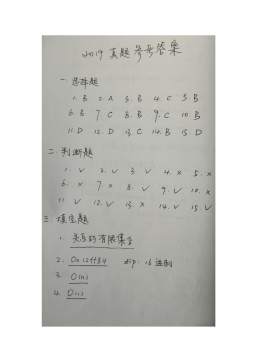 2019 真题参考答案
一. 选择题
1. B 2. A 3. B 4. C 5. B
6. B 7. C 8. B 9. C 10. B
11. D 12. D 13. C 14. B 15. D
二. 判断题
1. √ 2. √ 3. √ 4. × 5. ×
6. × 7. × 8. √ 9. √ 10. ×
11. √ 12. √ 13. × 14. √ 15. √
三. 填空题
1. 关系的有限集合
2. 0x12ff84 16 进制
3. O(n)
4. O(1)